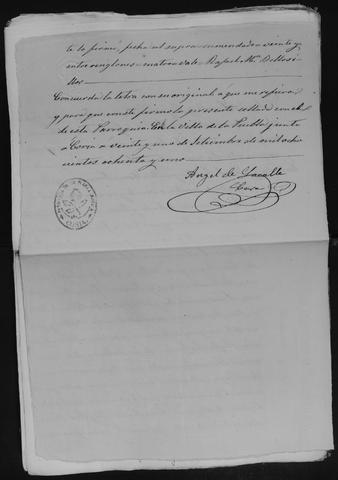 te la firmé, fecha ut supra enmendado veinte y
entre renglones cuatro vale Rafael M.
Concuerda la letra con su original a que me refiero
y para que conste firmo la presente sellada con el
de esta Parroquia. En la Villa de la Puebla junto
a Coria a veinte y uno de Setiembre de mil ocho
cientos ochenta y uno
Angel de Lacalle
Cura
CORIA